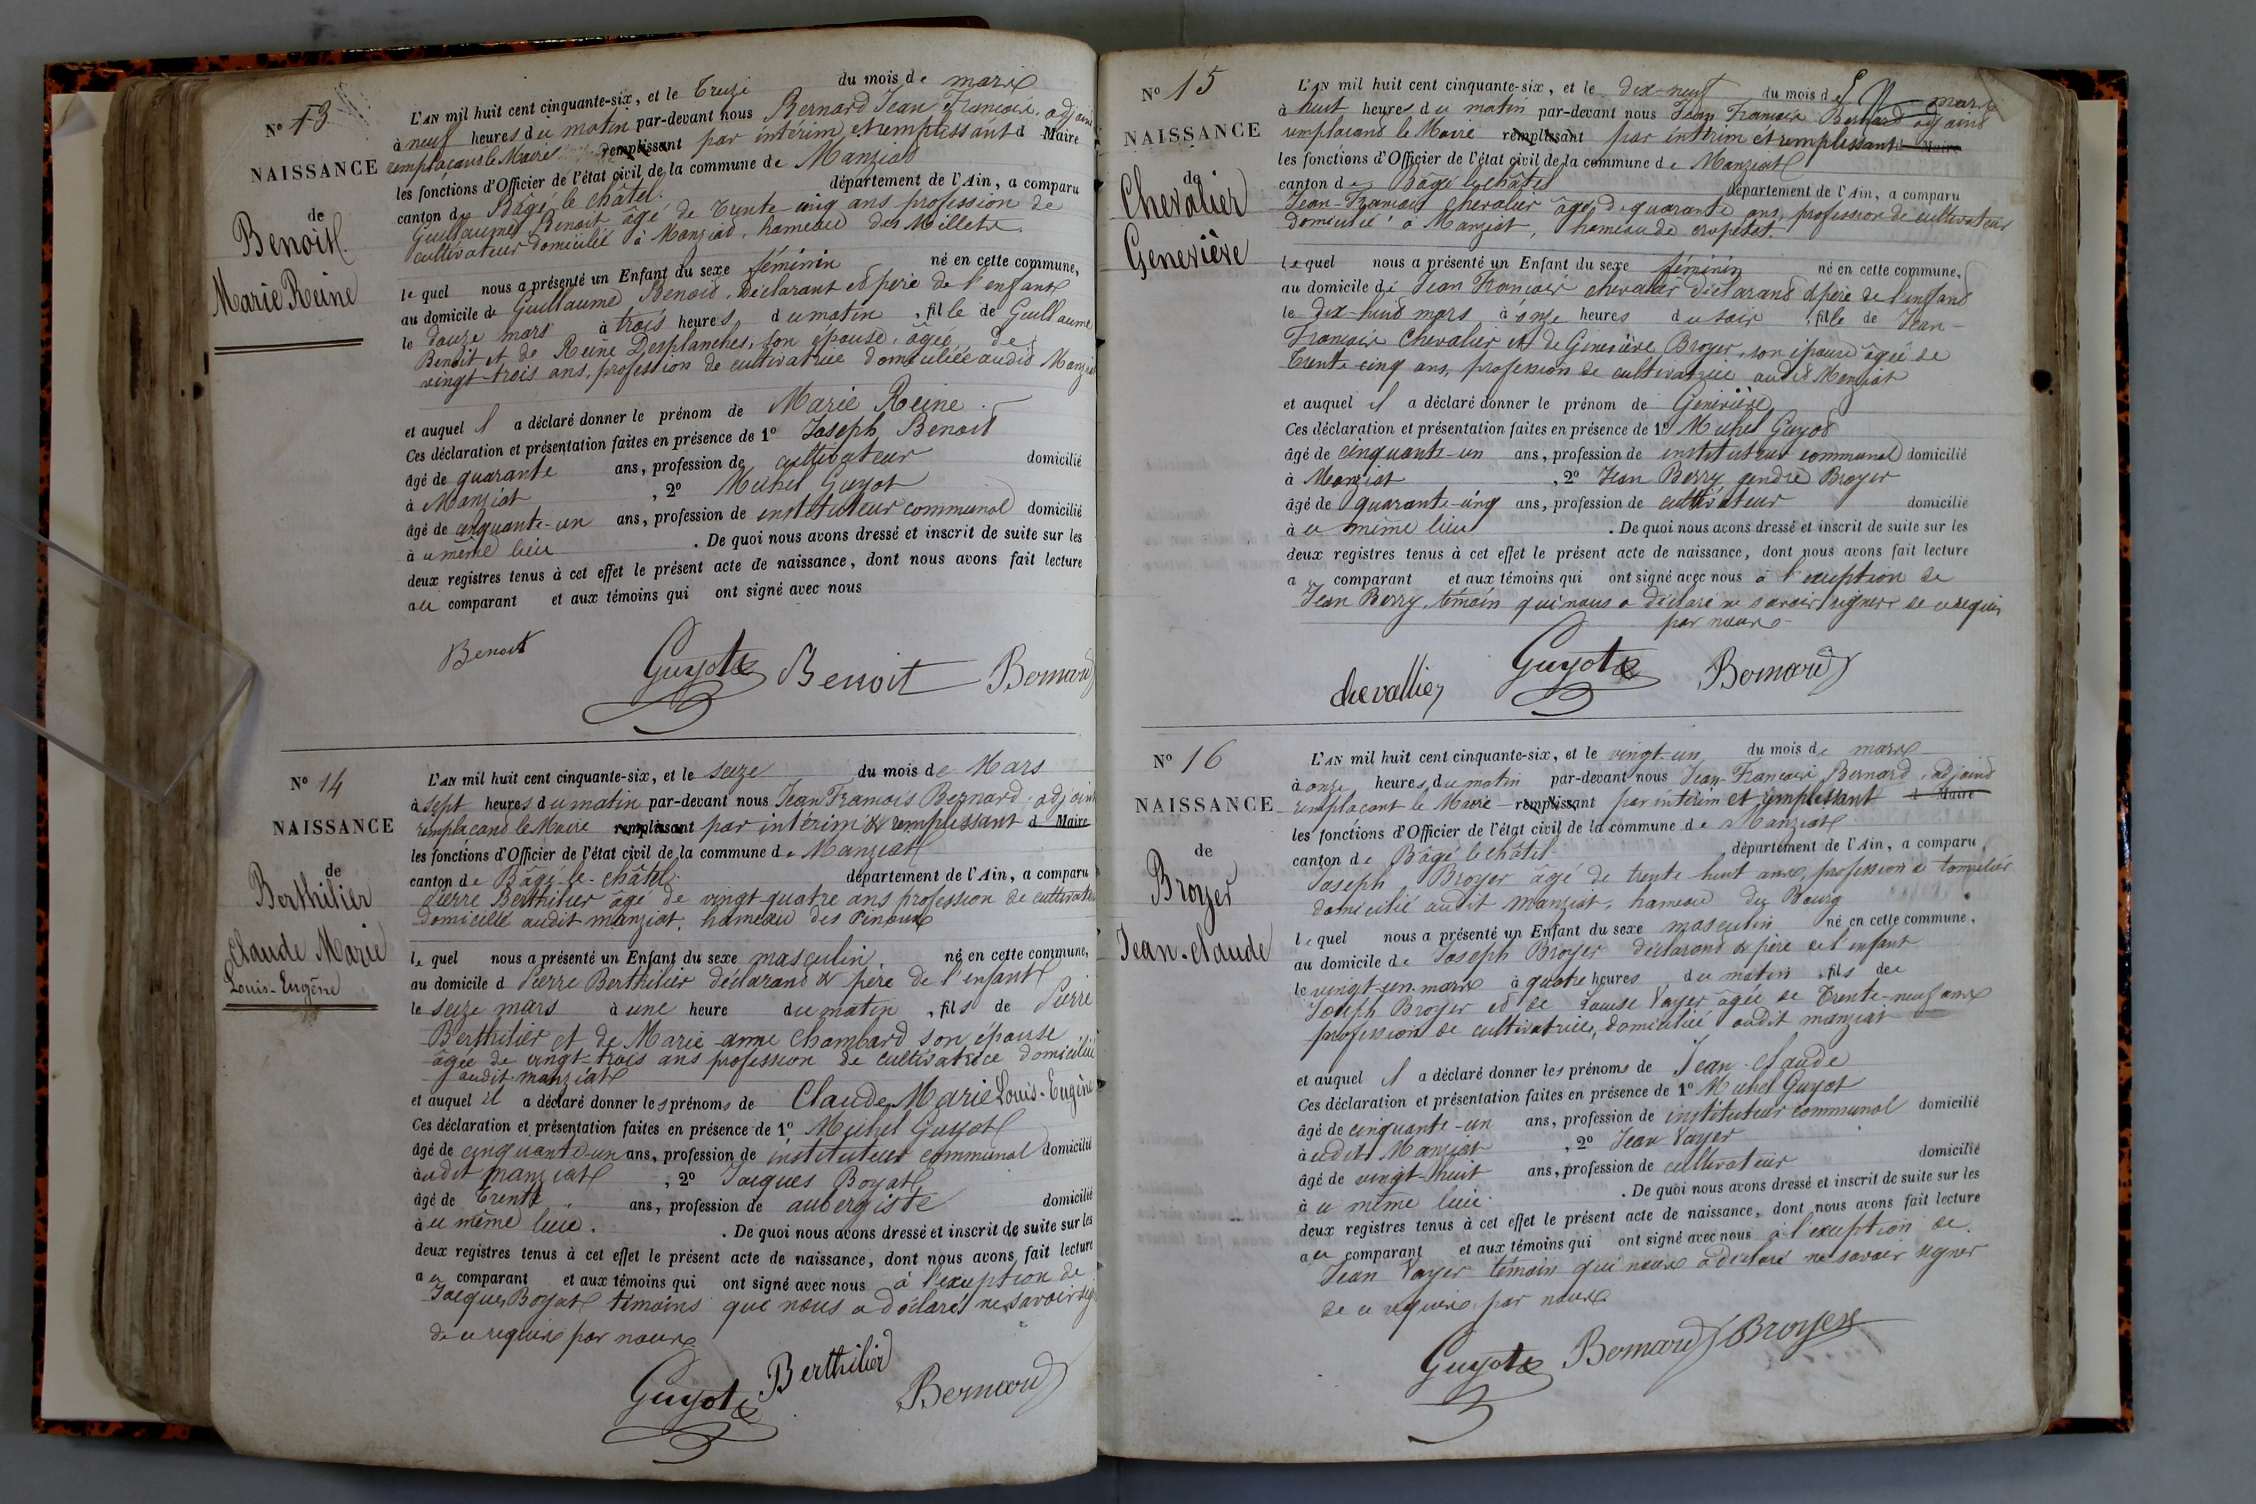 N° 13
NAISSANCE
de
Benoit
Marie Reine
L'AN mil huit cent cinquante-six, et le Treize du mois de mars
à neuf heures du matin par-devant nous Bernard Jean François, adjoint
remplaçant le Maire remplissant par intérim et remplissant d Maire
les fonctions d'Officier de l'état civil de la commune de Manziat
canton de Bâgé-le-châtel. département de l'Ain, a comparu
Guillaume Benoit âgé de trente-cinq ans profession de
cultivateur domicilié à Manziat, hameau des Millets
lequel nous a présenté un Enfant du sexe féminin né en cette commune,
au domicile de Guillaume Benoit, déclarant et père de l'enfant
le douze mars à trois heures du matin, fille de Guillaume
Benoit et de Reine Desplanches, son épouse, âgée de
vingt-trois ans, profession de cultivatrice domiciliée audit Manziat
et auquel il a déclaré donner le prénom de Marie Reine.
Ces déclaration et présentation faites en présence de 1° Joseph Benoit
âgé de quarante ans, profession de cultivateur domicilié
à Manziat, 2° Michel Guyot
âgé de cinquante-un ans, profession de instituteur communal domicilié
à ce même lieu. De quoi nous avons dressé et inscrit de suite sur les
deux registres tenus à cet effet le présent acte de naissance, dont nous avons fait lecture
au comparant et aux témoins qui ont signé avec nous
Benoit Guyot Benoit Bernard
N° 14
NAISSANCE
de
Berthilier
Claude Marie
Louis-Eugène
L'AN mil huit cent cinquante-six, et le seize du mois de Mars
à sept heures du matin par-devant nous Jean François Bernard, adjoint
remplaçant le Maire remplissant par intérim et remplissant d Maire
les fonctions d'Officier de l'état civil de la commune de Manziat
canton de Bâgé-le-châtel. département de l'Ain, a comparu
Pierre Berthilier âgé de vingt-quatre ans profession de cultivateur
domicilié audit manziat, hameau des Pinoux
lequel nous a présenté un Enfant du sexe masculin, né en cette commune,
au domicile d Pierre Berthilier déclarant et père de l'enfant
le seize mars à une heure du matin, fils de Pierre
Berthilier et de Marie-anne Chambard son épouse
âgée de vingt-trois ans profession de cultivatrice domiciliée
audit manziat
et auquel il a déclaré donner les prénoms de Claude Marie Louis-Eugène
Ces déclaration et présentation faites en présence de 1° Michel Guyot
âgé de cinquante-un ans, profession de instituteur communal domicilié
audit manziat, 2° Jacques Boyat
âgé de trente ans, profession de aubergiste domicilié
à ce même lieu. De quoi nous avons dressé et inscrit de suite sur les
deux registres tenus à cet effet le présent acte de naissance, dont nous avons fait lecture
au comparant et aux témoins qui ont signé avec nous à l'exception de
Jacques Boyat témoins que nous a déclarés ne savoir
de ce requis par nous
Guyot Berthilier Bernard
N° 15
NAISSANCE
de
Chevalier
Geneviève
L'AN mil huit cent cinquante-six, et le dix-neuf du mois de mars
à huit heures du matin par-devant nous Jean François Bernard adjoint
remplaçant le Maire remplissant par intérim et remplissant d Maire
les fonctions d'Officier de l'état civil de la commune de Manziat
canton de Bâgé le châtel département de l'Ain, a comparu
Jean-François Chevalier âgé de quarante ans, profession de cultivateur
domicilié à Manziat, hameau de cropetet.
lequel nous a présenté un Enfant du sexe féminin né en cette commune,
au domicile de Jean François chevalier déclarant et père de l'enfant
le dix-huit mars à onze heures du soir, fille de Jean-
François Chevalier et de Geneviève Broyer, son épouse âgée de
trente-cinq ans, profession de cultivatrice audit Manziat
et auquel il a déclaré donner le prénom de Geneviève
Ces déclaration et présentation faites en présence de 1° Michel Guyot
âgé de cinquante-un ans, profession de instituteur communal domicilié
à Manziat, 2° Jean Berry gendre Broyer
âgé de quarante-cinq ans, profession de cultivateur domicilié
à ce même lieu. De quoi nous avons dressé et inscrit de suite sur les
deux registres tenus à cet effet le présent acte de naissance, dont nous avons fait lecture
a comparant et aux témoins qui ont signé avec nous à l'exception de
Jean Berry, témoin qui nous a déclaré ne savoir signer de ce requis
par nous
chevallier Guyot Bernard
N° 16
NAISSANCE
de
Broyer
Jean-claude
L'AN mil huit cent cinquante-six, et le vingt-un du mois de mars
à onze heures du matin par-devant nous Jean-François Bernard, adjoint
remplaçant le Maire remplissant par intérim et remplissant d Maire
les fonctions d'Officier de l'état civil de la commune de Manziat
canton de Bâgé le châtel département de l'Ain, a comparu
Joseph Broyer âgé de trente huit ans, profession de tonnelier
domicilié audit Manziat, hameau du Bourg
lequel nous a présenté un Enfant du sexe masculin né en cette commune,
au domicile de Joseph Broyer déclarant et père de l'enfant
le vingt-un mars à quatre heures du matin, fils de
Joseph Broyer et de Louise Vayer âgée de trente-neuf ans
profession de cultivatrice, domiciliée audit manziat
et auquel il a déclaré donner les prénoms de Jean-claude
Ces déclaration et présentation faites en présence de 1° Michel Guyot
âgé de cinquante-un ans, profession de instituteur communal domicilié
audit Manziat, 2° Jean Vayer
âgé de vingt-huit ans, profession de cultivateur domicilié
à ce même lieu. De quoi nous avons dressé et inscrit de suite sur les
deux registres tenus à cet effet le présent acte de naissance, dont nous avons fait lecture
au comparant et aux témoins qui ont signé avec nous à l'exception de
Jean Vayer témoin qui nous a déclaré ne savoir signer
de ce requis par nous
Guyot Bernard Broyer